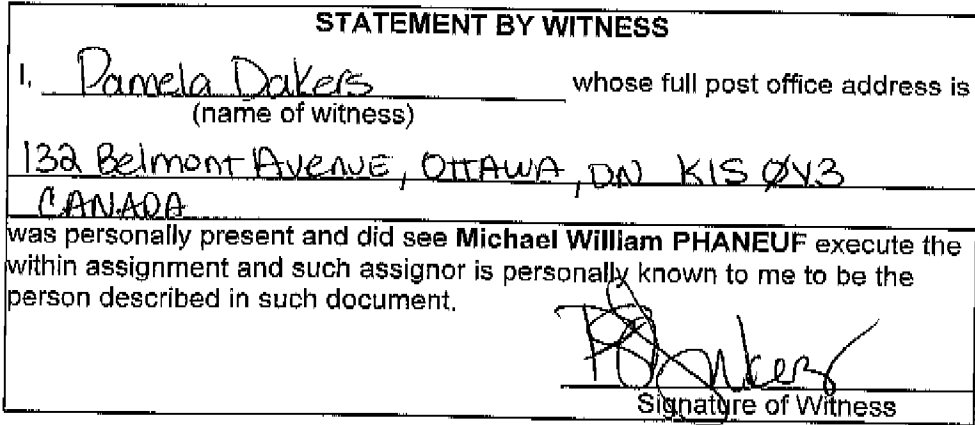 STATEMENT BY WITNESS
I, Pamela Dakers whose full post office address is
(name of witness)
132 Belmont Avenue, OTTAWA, ON K1S ØV3
CANADA
was personally present and did see Michael William PHANEUF execute the
within assignment and such assignor is personally known to me to be the
person described in such document.
Signature of Witness